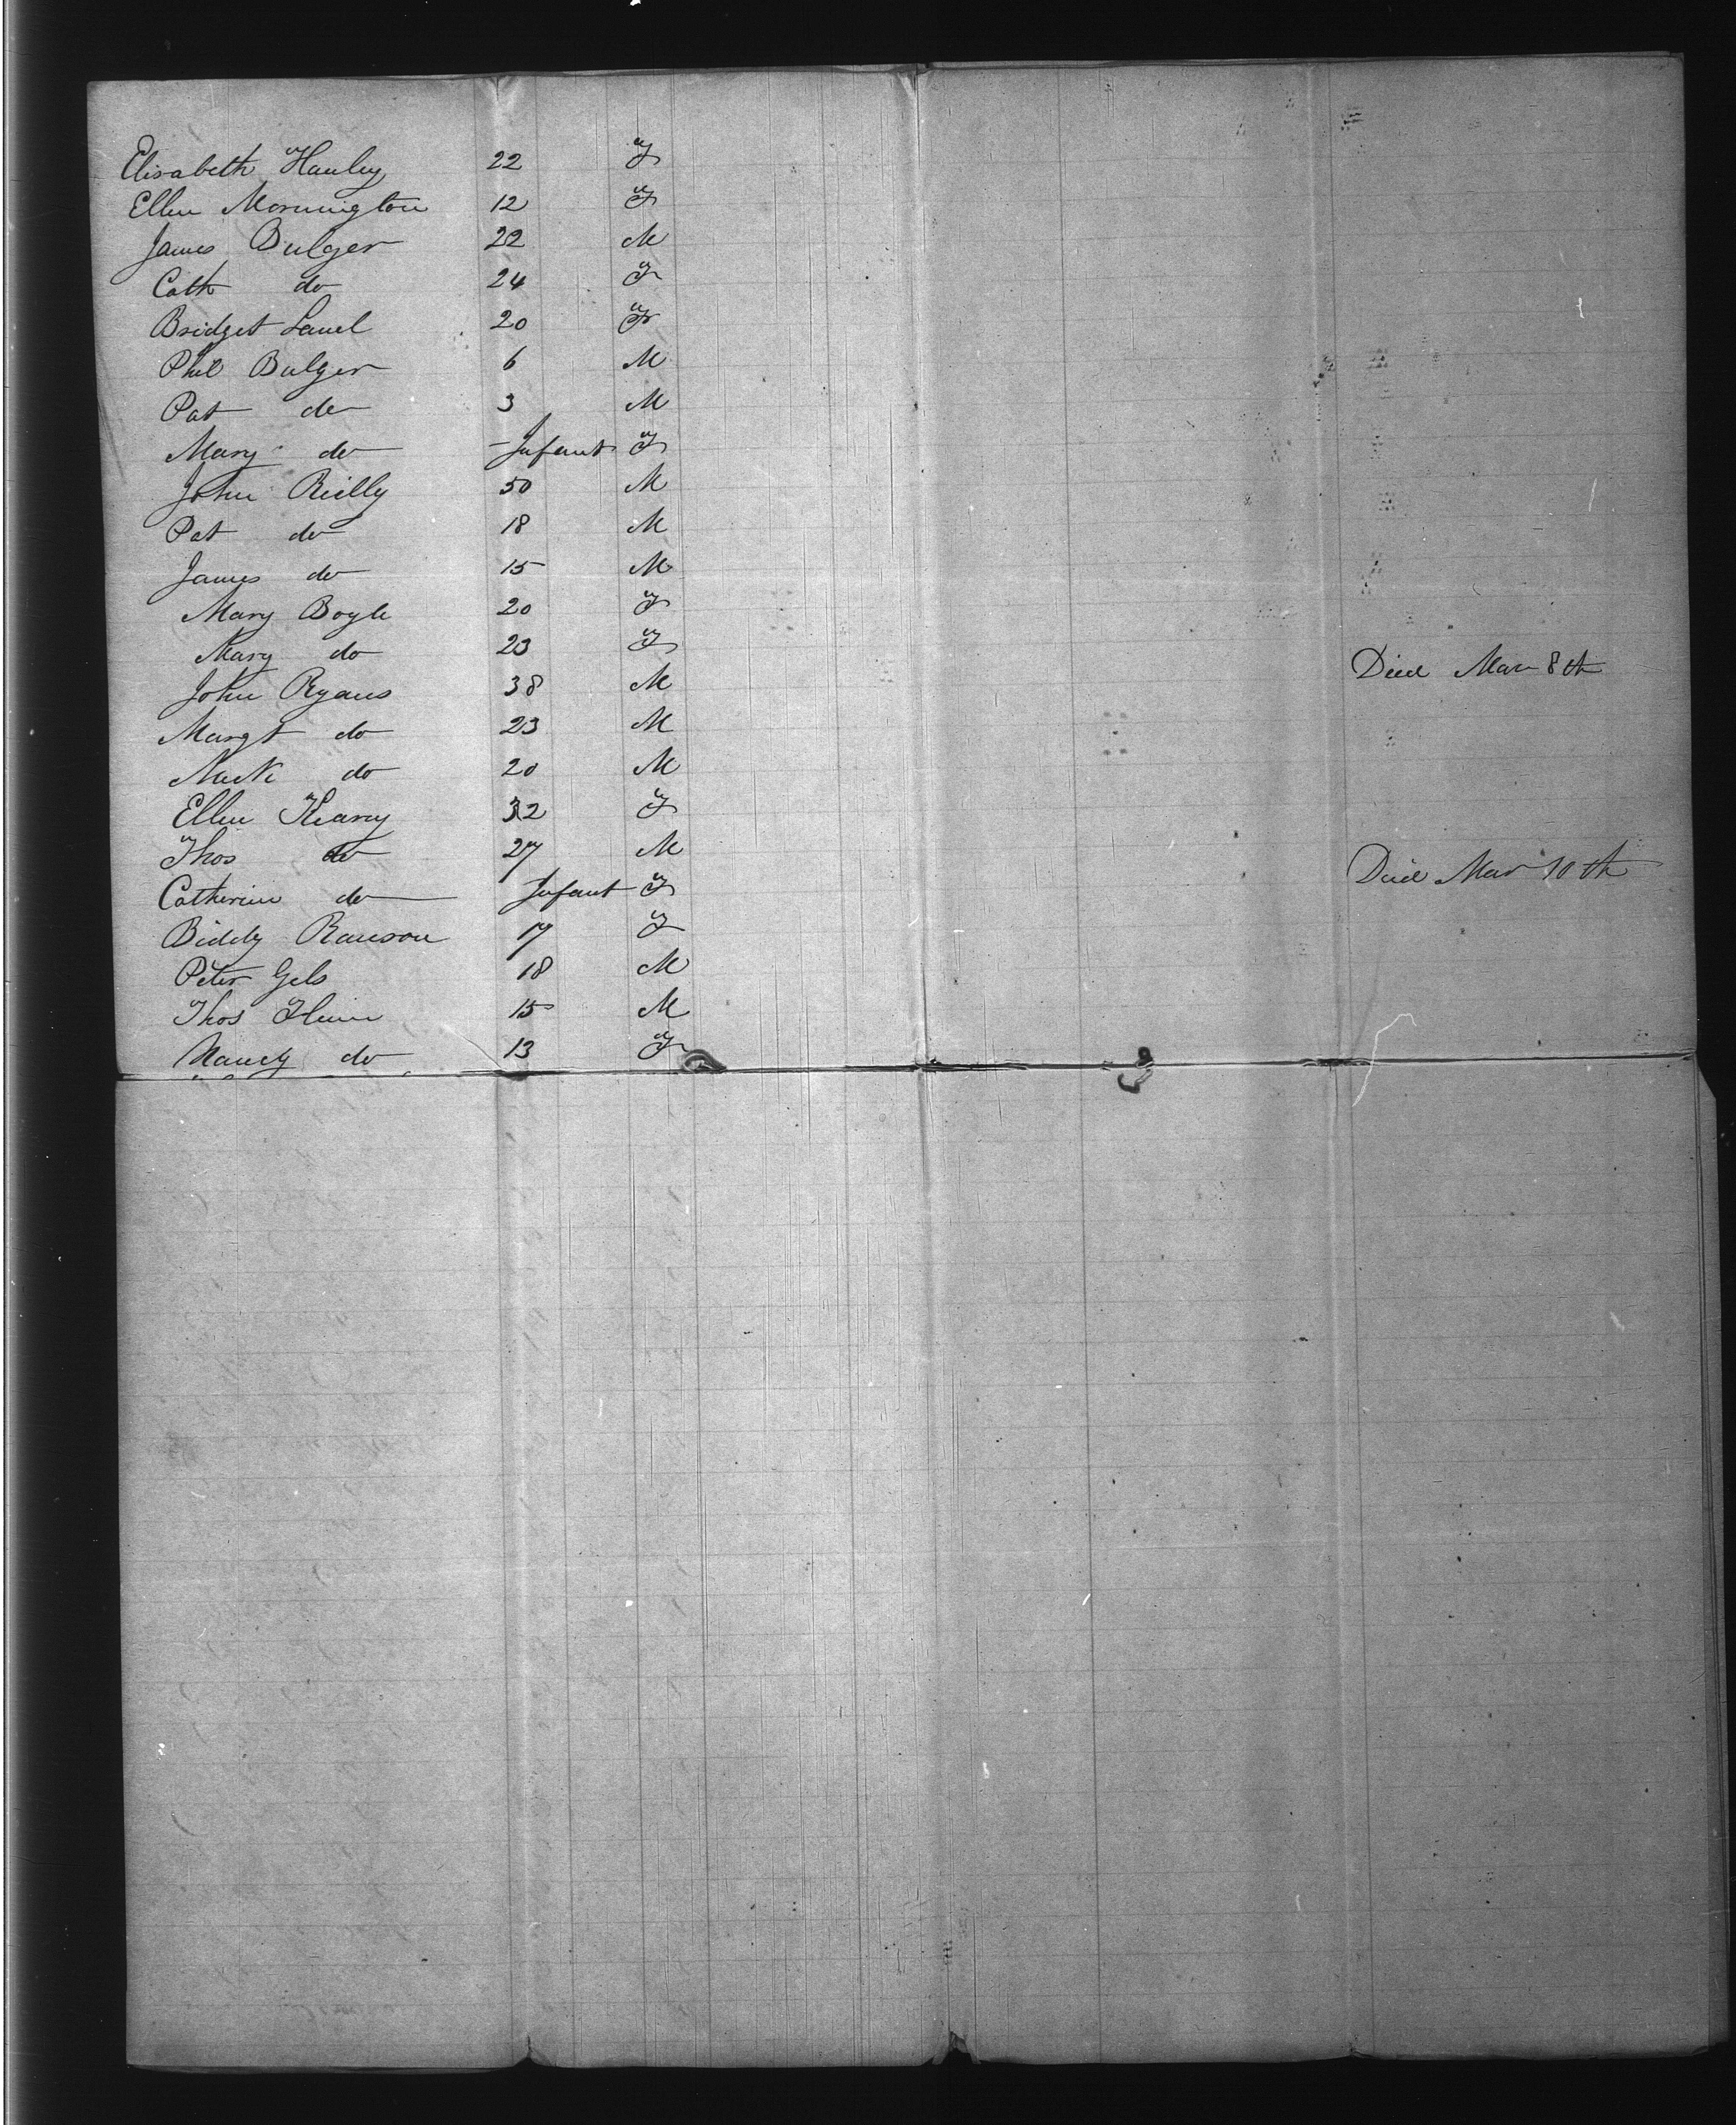 Elisabeth Hanley 22 F
Ellen Mornington 12 F
James Bulger 22 M
Cath do 24 F
Bridget Lauel 20 F
Phil Bulger 6 M
Pat do 3 M
Mary do Infant F
John Reilly 50 M
Pat do 18 M
James do 15 M
Mary Boyle 20 F
Mary do 23 F Died Mar 8th
John Ryans 38 M
Margt do 23 M
do 20 M
Ellen Keary 32 F
Thos do 27 M Died Mar 10th
Catherine do Infant F
Biddy Rauson 17 F
Peter Gels 18 M
Thos 15 M
Nancy do 13 F